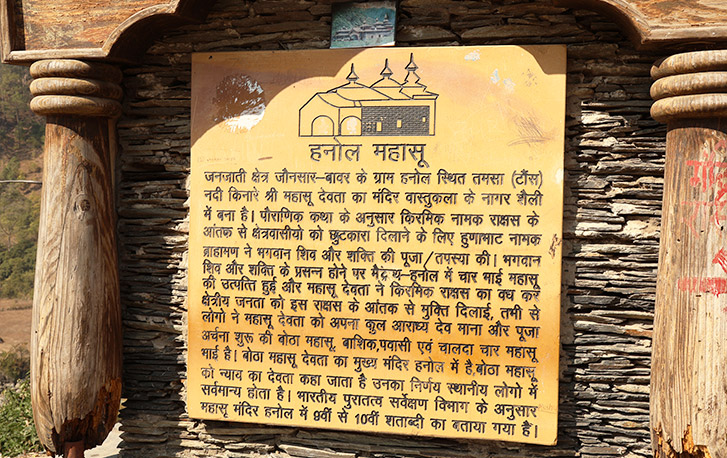 हनोल महासू
जनजाती क्षेत्र जौनसार–बावर के ग्राम हनोल स्थित तमसा (टौंस)
नदी किनारे श्री महासू देवता का मंदिर वास्तुकला के नागर शैली
में बना है। पौराणिक कथा के अनुसार किरमिक नामक राक्षस के
आंतक से क्षेत्रवासीयो को छुटकारा दिलाने के लिए हुणाभाट नामक
ब्राहामण ने भगवान शिव और शक्ति की पूजा/तपस्या की। भगवान
शिव और शक्ति के प्रसन्न होने पर मैद्रथ–हनोल में चार भाई महासू
की उत्पत्ति हुई और महासू देवता ने किरमिक राक्षस का वध कर
क्षेत्रीय जनता को इस राक्षस के आंतक से मुक्ति दिलाई, तभी से
लोगो ने महासू देवता को अपना कुल आराध्य देव माना और पूजा
अर्चना शुरू की बोठा महासू, बाशिक,पवासी एवं चालदा चार महासू
भाई है। बोठा महासू देवता का मुख्य मंदिर हनोल में है,बोठा महासू
को न्याय का देवता कहा जाता है उनका निर्णय स्थानीय लोगो में
सर्वमान्य होता है। भारतीय पुरातत्व सर्वेक्षण विभाग के अनुसार
महासू मंदिर हनोल में 9वीं से 10वीं शताब्दी का बताया गया है।